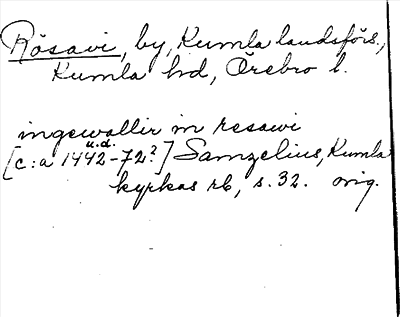 Rösavi, by, Kumla landsförs.,
Kumla hd, Örebro l.
ingewallir in resawi
u.d.
[c:a 1442-72?] Samzelius, Kumla
kyrkas rb, s. 32. orig.